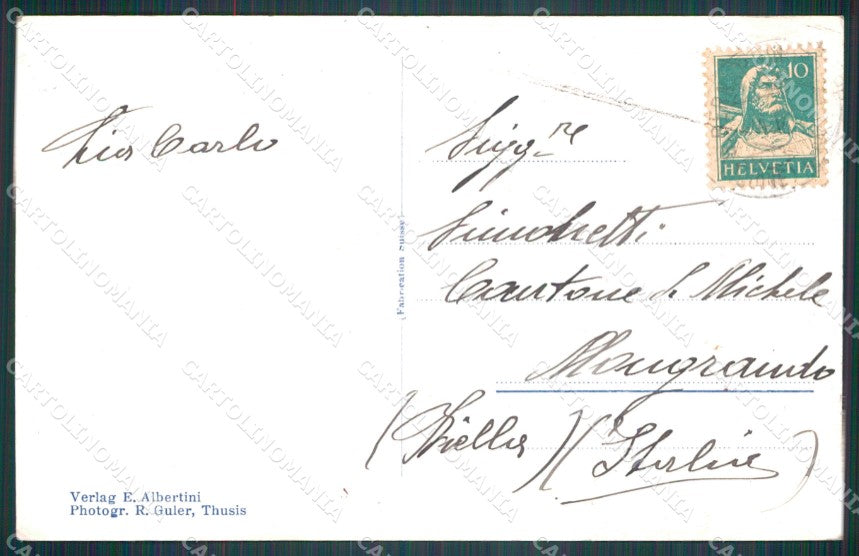 Zio Carlo
Sigg.re
Simonetti
Cantone S. Michele
Mongrando
(Biella) (Italia)
10
HELVETIA
(Fabrication Suisse)
Verlag E. Albertini
Photogr. R. Guler, Thusis
CARTOLINOMANIA